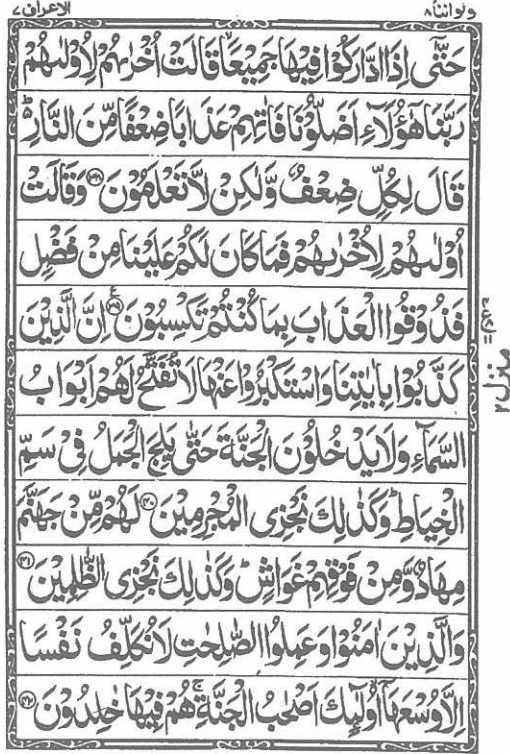 ولواننا ٨ الاعراف ٧
حَتّٰۤى اِذَا ادَّارَكُوْا فِيْهَا جَمِيْعًا ۙ قَالَتْ اُخْرٰىهُمْ لِاُوْلٰىهُمْ
رَبَّنَا هٰۤؤُلَآءِ اَضَلُّوْنَا فَاٰتِهِمْ عَذَابًا ضِعْفًا مِّنَ النَّارِ ؕ
قَالَ لِكُلٍّ ضِعْفٌ وَّلٰكِنْ لَّا تَعْلَمُوْنَ ﴿۳۸﴾ وَقَالَتْ
اُوْلٰىهُمْ لِاُخْرٰىهُمْ فَمَا كَانَ لَكُمْ عَلَيْنَا مِنْ فَضْلٍ
فَذُوْقُوا الْعَذَابَ بِمَا كُنْتُمْ تَكْسِبُوْنَ ﴿۳۹﴾ ع اِنَّ الَّذِيْنَ
كَذَّبُوْا بِاٰيٰتِنَا وَاسْتَكْبَرُوْا عَنْهَا لَا تُفَتَّحُ لَهُمْ اَبْوَابُ
السَّمَآءِ وَلَا يَدْخُلُوْنَ الْجَنَّةَ حَتّٰى يَلِجَ الْجَمَلُ فِيْ سَمِّ
الْخِيَاطِ ؕ وَكَذٰلِكَ نَجْزِى الْمُجْرِمِيْنَ ﴿۴۰﴾ لَهُمْ مِّنْ جَهَنَّمَ
مِهَادٌ وَّمِنْ فَوْقِهِمْ غَوَاشٍ ؕ وَكَذٰلِكَ نَجْزِى الظّٰلِمِيْنَ ﴿۴۱﴾
وَالَّذِيْنَ اٰمَنُوْا وَعَمِلُوا الصّٰلِحٰتِ لَا نُكَلِّفُ نَفْسًا
اِلَّا وُسْعَهَاۤ ؗ اُولٰٓئِكَ اَصْحٰبُ الْجَنَّةِ ۚ هُمْ فِيْهَا خٰلِدُوْنَ ﴿۴۲﴾
منزل ۲